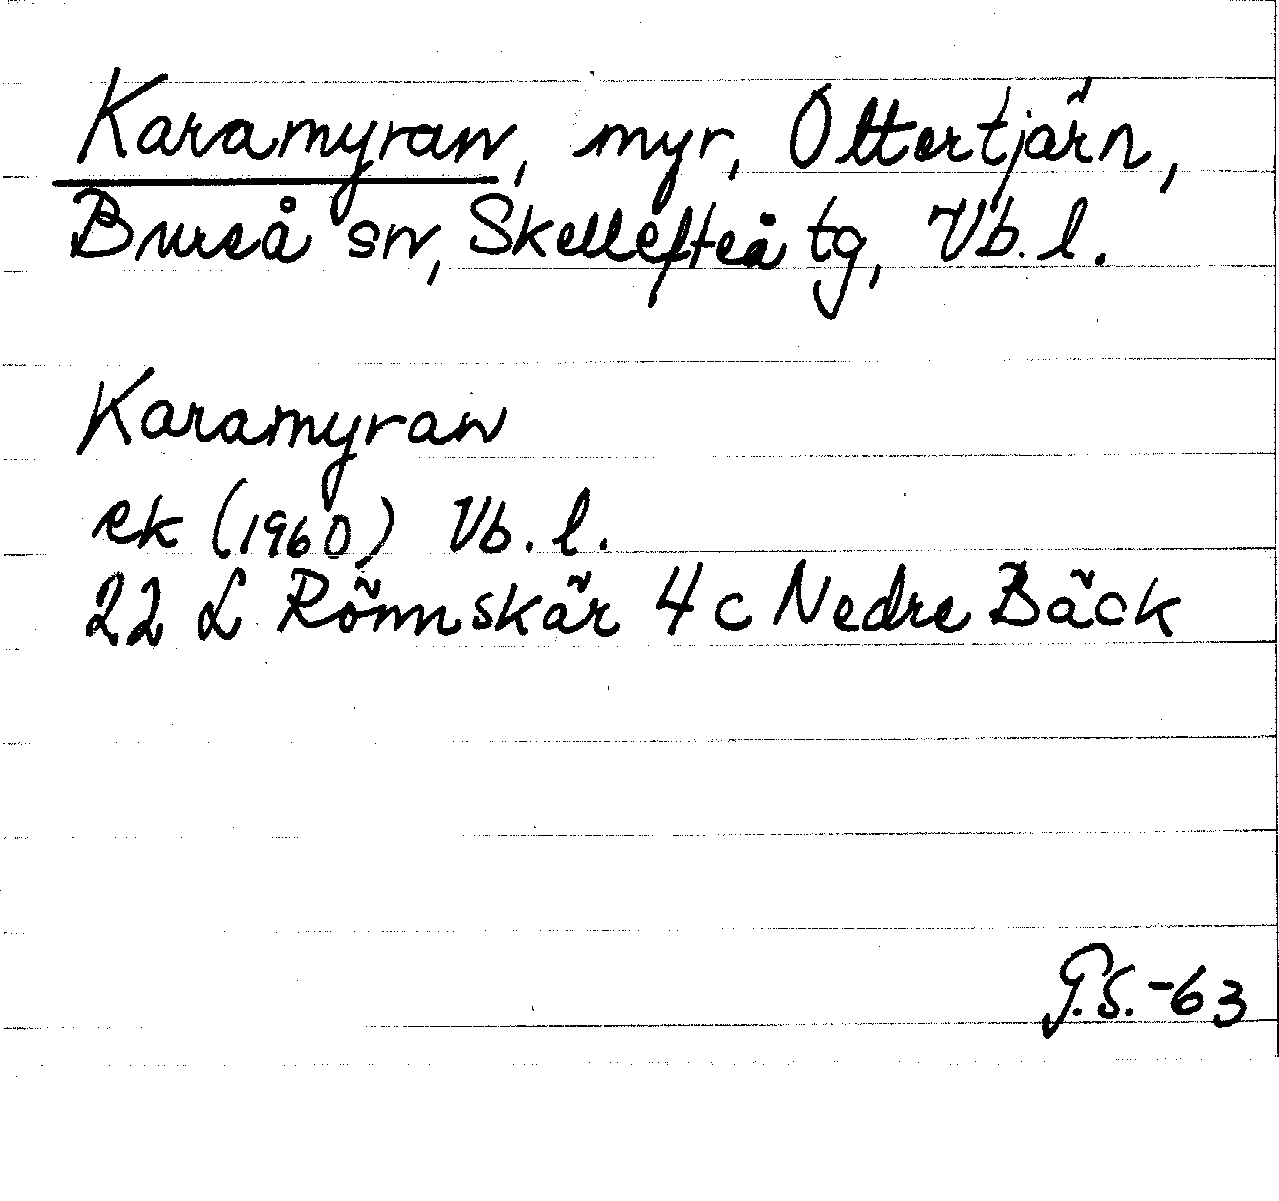 Karamyran, myr, Ottertjärn,
Bureå sn, Skellefteå tg, Vb. l.
Karamyran
ek (1960) Vb. l.
22 L Rönnskär 4 c Nedre Bäck
G.S.-63